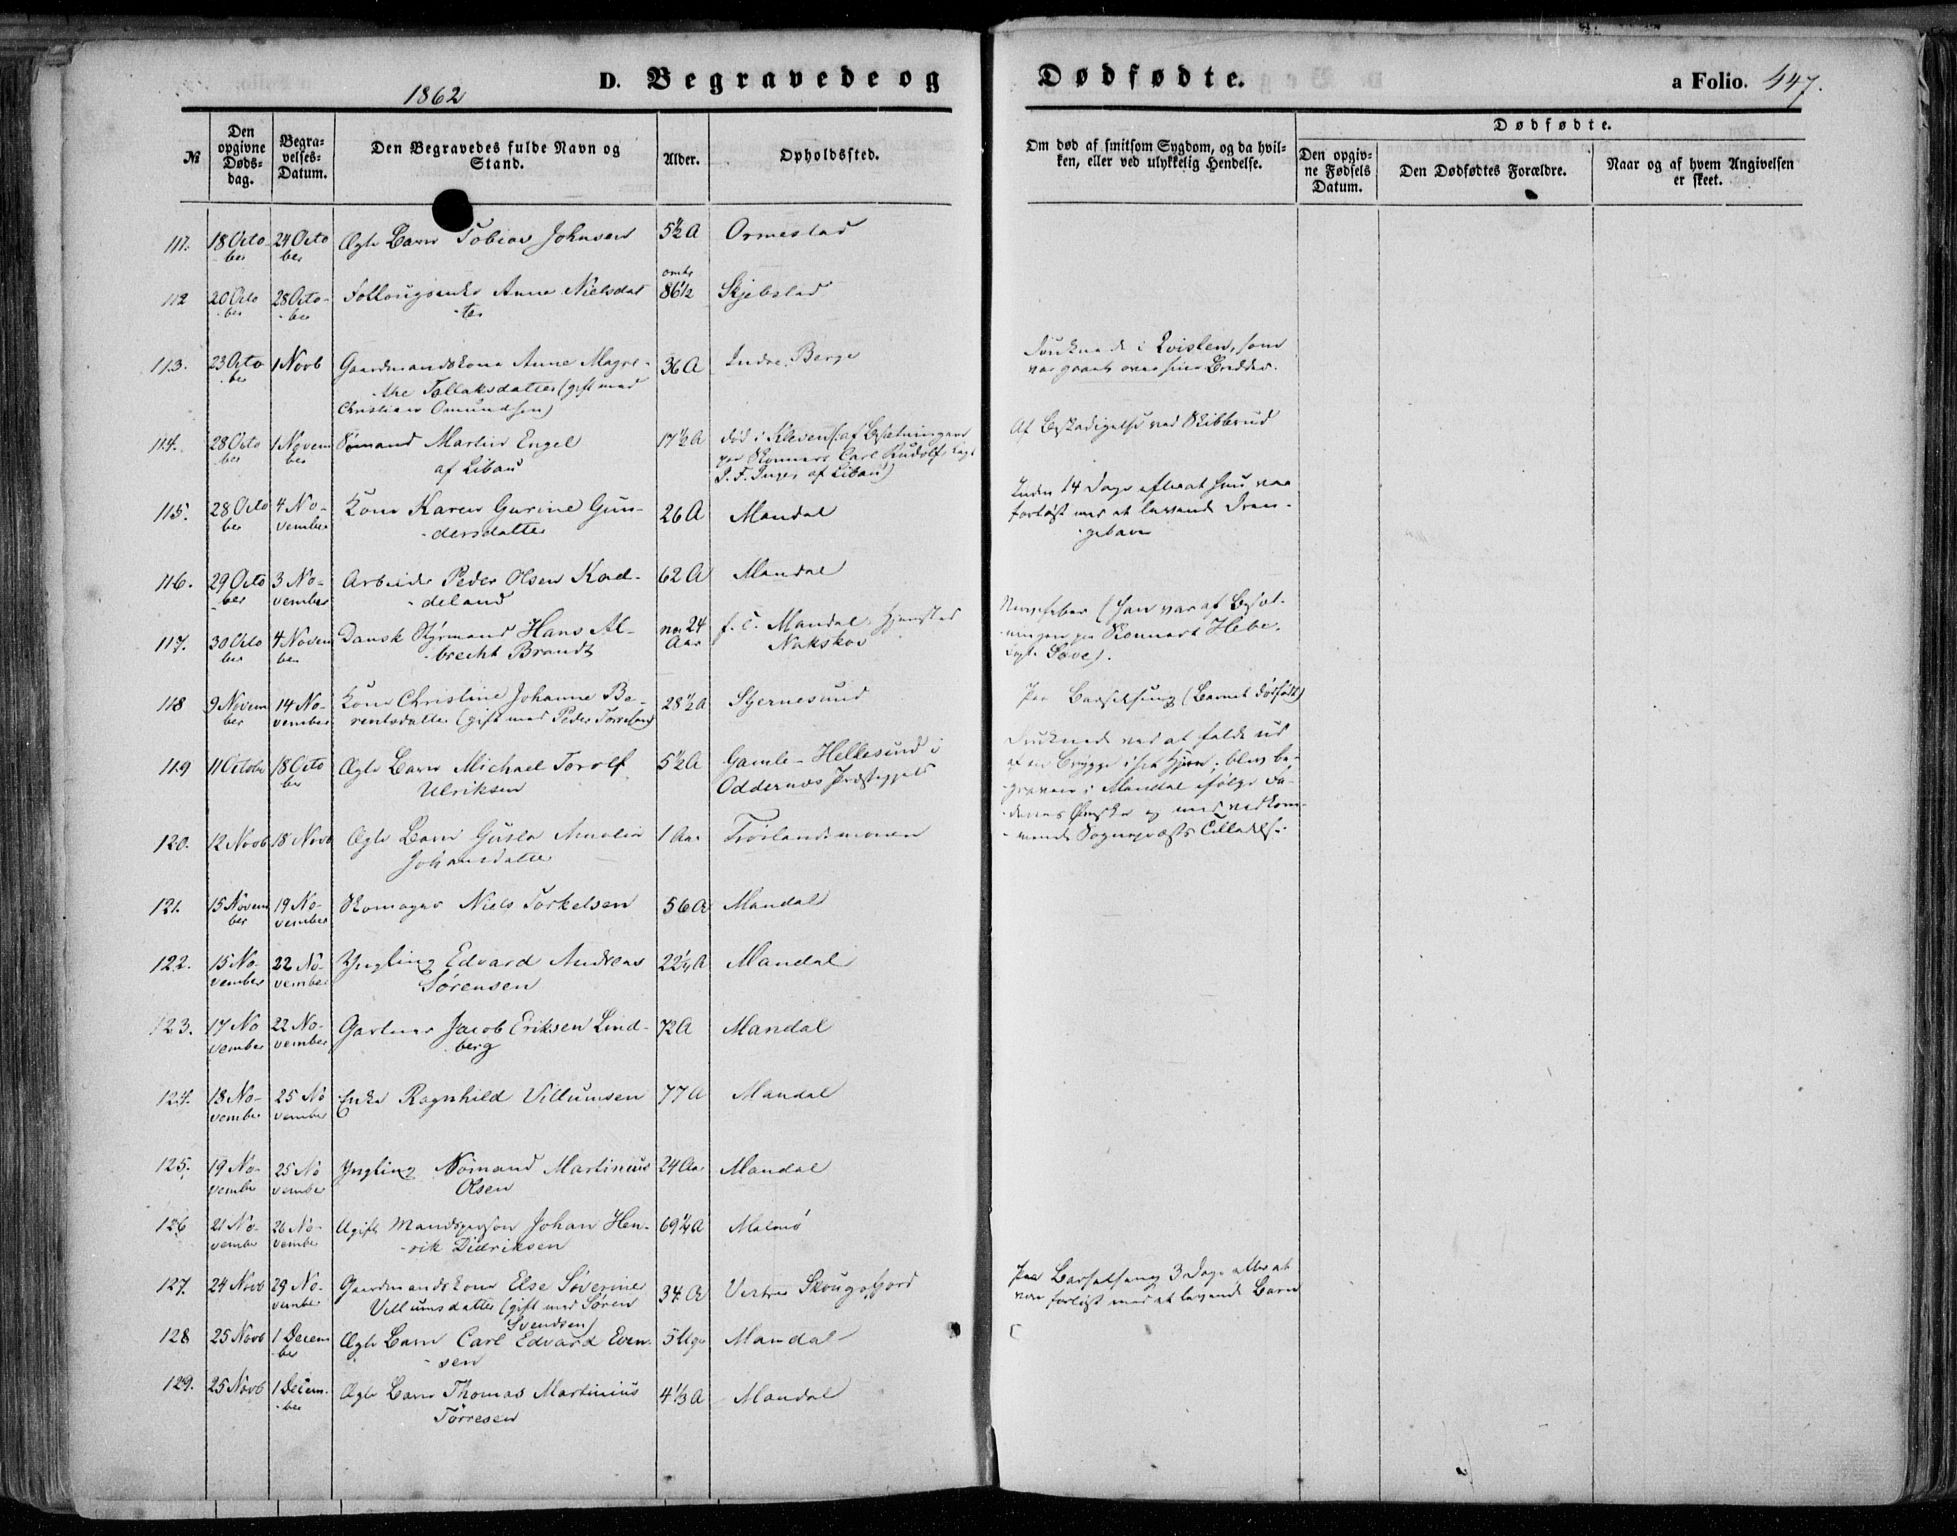 1862
D. Begravede og Dødfødte. a Folio. 447.
№
Den opgivne Døds-dag.
Begra-velses-Datum.
Den Begravedes fulde Navn og Stand.
Alder.
Opholdssted.
Om død af smitsom Sygdom, og da hvil-ken, eller ved ulykkelig Hendelse.
Dødfødte.
Den opgiv-ne Fødsels Datum.
Den Dødfødtes Forældre.
Naar og af hvem Angivelsen er skeet.
111. 18 Octo-ber 24 Octo-ber Ægte Barn Tobias Johnsen 5½ A Ormestad
112 20 Octo-ber 28 Octo-ber Anne Nielsdat-ter omtr 86½ Skjebstad
113. 23 Octo-ber 1 Novb Gaardmandskone Anne Magre-
the Tollaksdatter (gift med
Christian Omundsen) 36 A Indre Berge
Druknede i Qvislen, som
var gaaet over sine Bredder.
114. 28 Octo-ber 1 Novem-ber Sømand Martin Engel
af Libau 17½ A død i Kleven (af Besætningen
paa Skonnert Carl Rudolf Capt
J. F. af Libau)
Af Beskadigelse ved Skibbrud
115. 28 Octo-ber 4 No-vember Kone Karen Gurine Gun-
dersdatter 26 A Mandal
Inden 14 Dage efterat hun var
forløst med et levende Dren-
gebarn
116. 29 Octo-ber 3 No-vember Arbeider Peder Olsen Kad-
deland 62 A Mandal
117. 30 Octo-ber 4 Novem-ber Dansk Styrmand Hans Al-
brecht Brandt 24 Aar f. T. Mandal, Hjemsted
Nakskov
Nervefeber (han var af Besæt-
ningen paa Skonnert Hebe.
Capt.
118 9 Novem-ber 14 No-vember Kone Christine Johanne Be-
rentsdatter (gift med Peder Torresen) 28½ A Stjernesund
Paa Barselseng (Barnet dødfødt)
119 11 Octobr 18 Octo-ber Ægte Barn Michael Torolf
Ulriksen 5½ A Gamle-Hellesund i
Oddernes Præstegjeld
Druknede ved at falde ud
af en Brygge i sit Hjem; blev be-
gravet i Mandal ifølge Fa-
derens Ønske og med vedkom-
mende Sognepræsts Tilladelse.
120. 12 Novb 18 Novb Ægte Barn Gusta Amalia
Johansdatter 1 Aar Frøslandsmonen
121. 15 Novem-ber 19 No-vember Skomager Niels Torkelsen 56 A Mandal
122. 15 No-vember 22 No-vember Yngling Edvard Andreas
Sørensen 22¼ A Mandal
123. 17 No-vember 22 No-vember Gartner Jacob Eriksen Lind-
berg 72 A Mandal
124. 18 No-vember 25 No-vember Enke Ragnhild Villumsen 77 A Mandal
125. 19 No-vember 25 No-vember Yngling Sømand Martinius
Olsen 24 Aar Mandal
126 21 No-vember 26 No-vember Ugift Mandsperson Johan Hen-
rik Didriksen 69¼ A Malmø
127. 24 Novb 29 No-vember Gaardmandskone Else Søverine
Villumsdatter (gift med Søren
Svendsen) 34 A Vestre Skougsfjord
Paa Barselseng 3 Dage efterat
være forløst med et levende Barn
128 25 Novb 1 Decem-ber Ægte Barn Carl Edvard Even-
sen 5 Uger Mandal
129. 25 Novb 1 Decem-ber Ægte Barn Thomas Martinius
Tørresen 4⅓ A Mandal